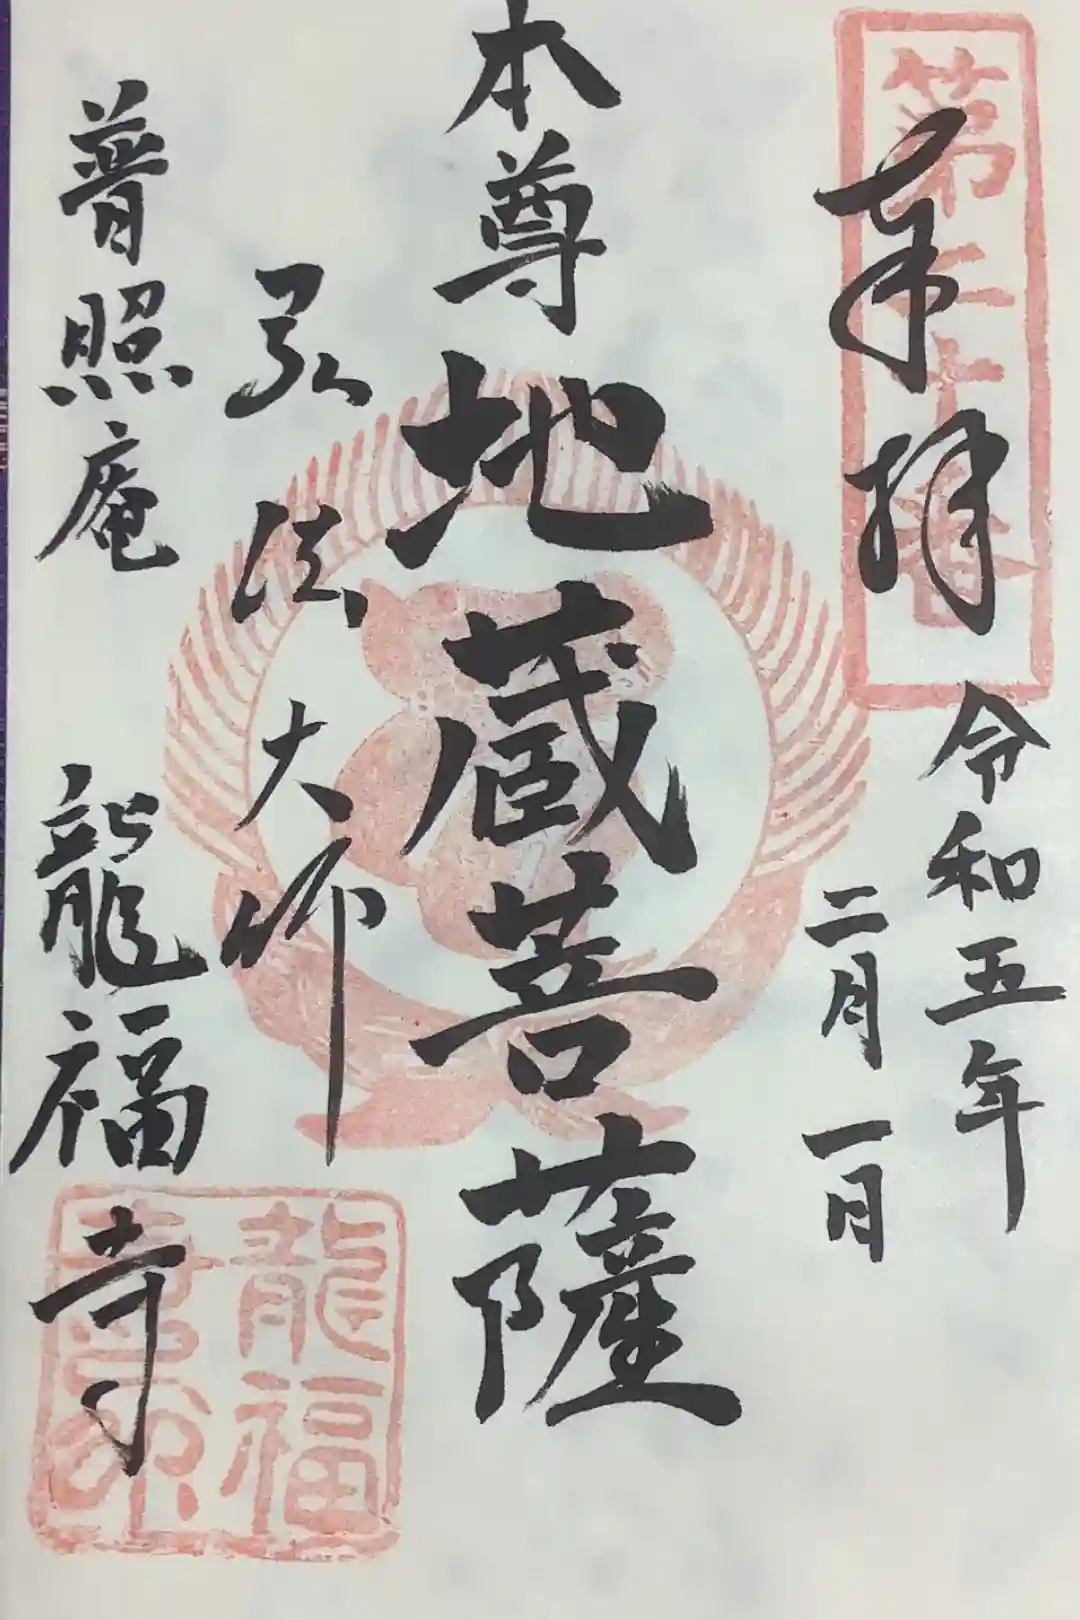 奉拝
第二十番
令和五年
二月一日
本尊地蔵菩薩
弘法大師
普照庵 龍福寺
龍福